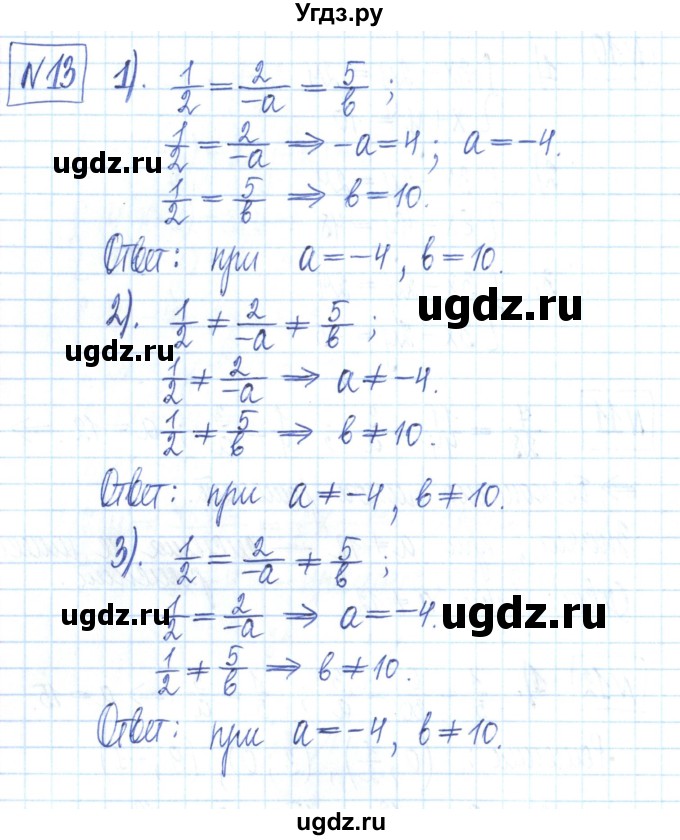 Угдз.ру
N13 1). 1/2 = 2/-a = 5/в ;
1/2 = 2/-a ⇒ -a=4; a=-4.
ugdz.ru
1/2 = 5/в ⇒ в=10.
ugdz.ru
Ответ: при a=-4, в=10.
ugdz.ru
2). 1/2 ≠ 2/-a ≠ 5/в ;
ugdz.ru
1/2 ≠ 2/-a ⇒ a≠-4.
1/2 ≠ 5/в ⇒ в≠10.
Ответ: при a≠-4, в≠10.
3). 1/2 = 2/-a ≠ 5/в ;
ugdz.ru
1/2 = 2/-a ⇒ a=-4.
ugdz.ru
1/2 ≠ 5/в ⇒ в≠10.
Ответ: при a=-4, в≠10.
ugdz.ru